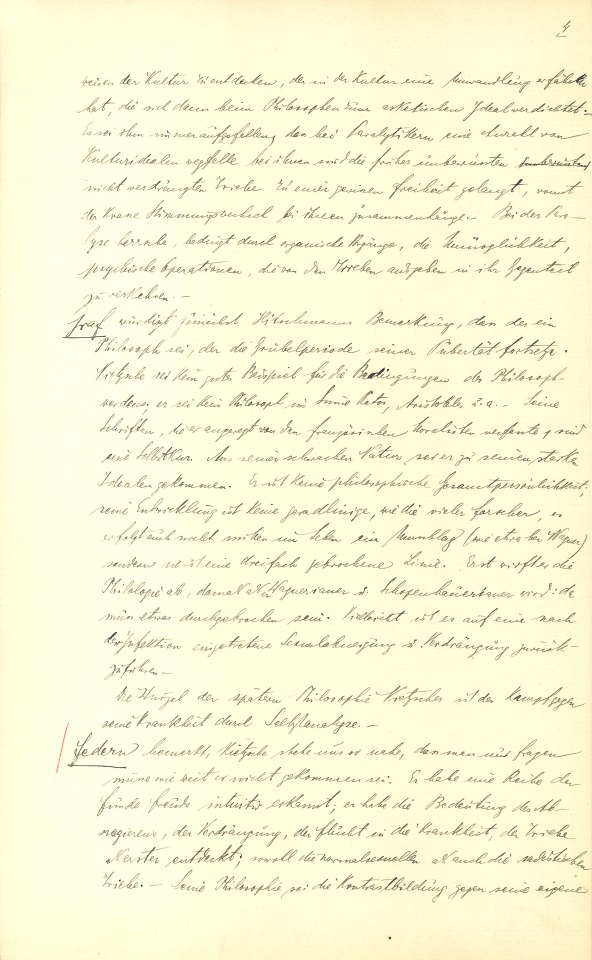 4
weisen der Kultur zu entdecken, der in der Kultur eine Umwandlung erfahren
hat, die sich dann beim Philosophen zum asketischen Ideal verdichtet.-
Es sei ihm immer aufgefallen, dass bei Paralytikern eine Anzahl von
Kulturidealen wegfalle bei ihnen sind die früher unbewussten
nicht verdrängten Triebe zu einer gewissen Freiheit gelangt, womit
der Stimmungswechsel bei ihnen zusammenhänge.- Bei der Para-
lyse herrsche, bedingt durch organische Vorgänge, die Unmöglichkeit,
psychische Operationen, die von den Trieben ausgehen in ihr Gegenteil
zu verkehren.-
Graf würdigt zunächst Hitschmanns Bemerkung, dass der ein
Philosoph sei, der die Grübelperiode seiner Pubertät fortsetze.
Nietzsche sei kein gutes Beispiel für die Bedingungen des Philosoph-
werdens; er sei kein Philosoph im Sinne Kants, Aristoteles u.a.- Seine
Schriften, die er angeregt von den französischen Moralisten verfasste, sind
eine Selbstkur. Aus seiner schwachen Natur sei er zu seinen starken
Idealen gekommen. Er ist keine philosophische Gesamtpersönlichkeit;
seine Entwicklung ist keine geradlinige, wie die vieler Forscher, es
erfolgt auch nicht mitten im Leben ein Umschlag (wie etwa bei Wagner)
sondern es ist eine dreifach gebrochene Linie. Erst wirft er die
Philologie ab, dann als er Wagnerianer u. Schopenhauerianer wird: da
muss etwas durchgebrochen sein. Vielleicht ist es auf eine nach
der Infektion eingetretene Sexualabneigung u. Verdrängung zurück-
zuführen.-
Die Wurzel der spätern Philosophie Nietzsches ist der Kampf gegen
seine Krankheit durch Selbstanalyse.-
Federn bemerkt, Nietzsche stehe uns so nahe, dass man nur fragen
müsse wie weit er nicht gekommen sei. Er habe eine Reihe der
Funde Freuds intuitiv erkannt; er habe die Bedeutung des Ab-
reagierens, der Verdrängung, der Flucht in die Krankheit, der Triebe
als Erster entdeckt; sowohl die normalsexuellen als auch die sadistischen
Triebe.- Seine Philosophie sei die Kontrastbildung gegen seine eigene